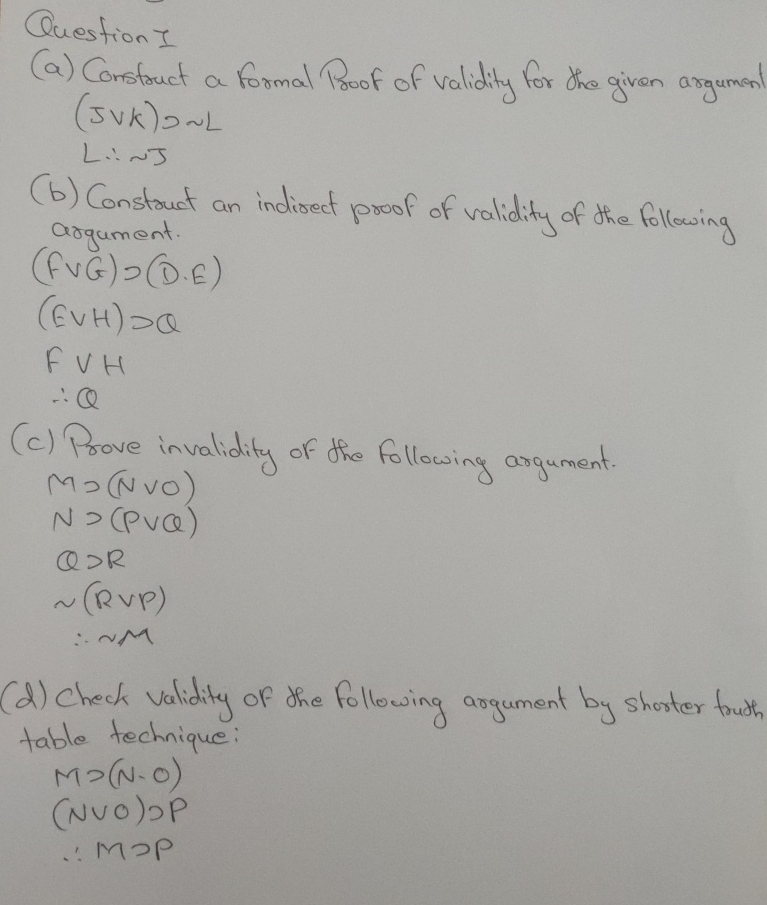 Question I
(a) Construct a formal Proof of validity for the given argument
(J∨K)⊃~L
L∴~J
(b) Construct an indirect proof of validity of the following
argument.
(F∨G)⊃(D.E)
(E∨H)⊃Q
F∨H
∴Q
(c) Prove invalidity of the following argument.
M⊃(N∨O)
N⊃(P∨Q)
Q⊃R
~(R∨P)
∴~M
(d) Check validity of the following argument by shorter truth
table technique:
M⊃(N.O)
(N∨O)⊃P
∴M⊃P